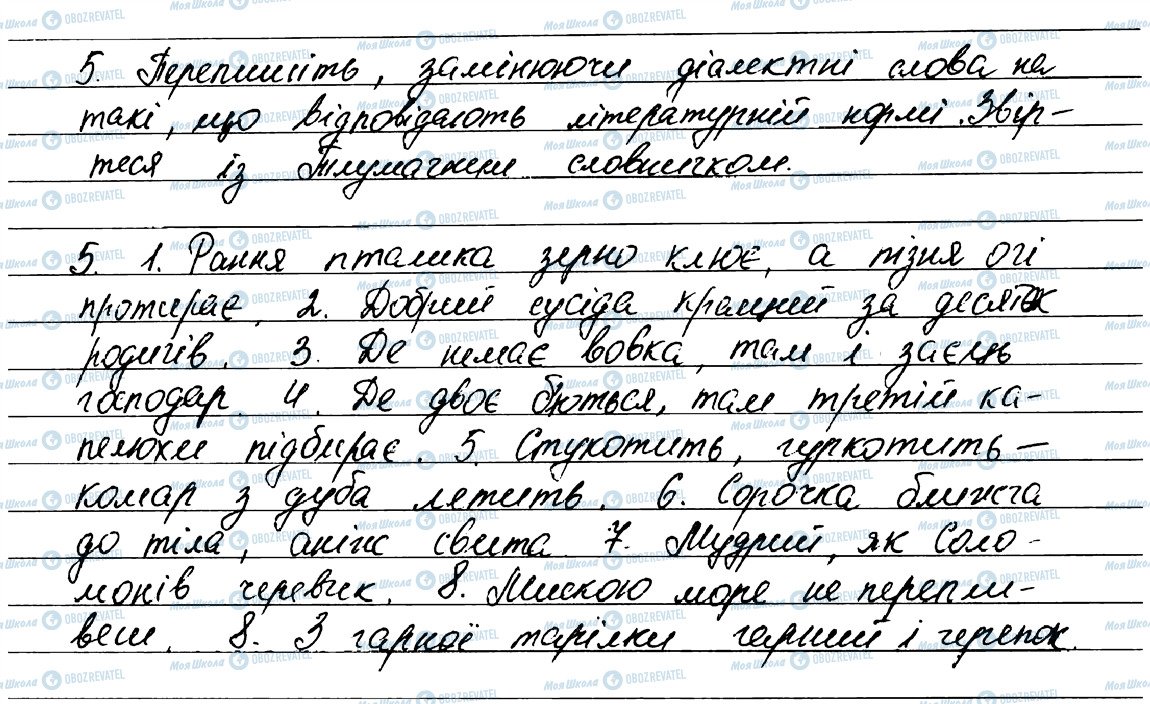 5. Перепишіть, замінюючи діалектні слова на
такі, що відповідають літературній нормі. Звір-
теся із Тлумачним словничком.
5. 1. Рання пташка зерно клює, а пізня очі
протирає. 2. Добрий сусіда кращий за десяток
родичів. 3. Де немає вовка, там і заєць
господар. 4. Де двоє бються, там третій ка-
пелюхи підбирає. 5. Стукотить, гуркотить —
комар з дуба летить. 6. Сорочка ближча
до тіла, аніж свита. 7. Мудрий, як Соло-
монів черевик. 8. Мискою море не перепли-
веш. 8. З гарної тарілки гарний і черепок.